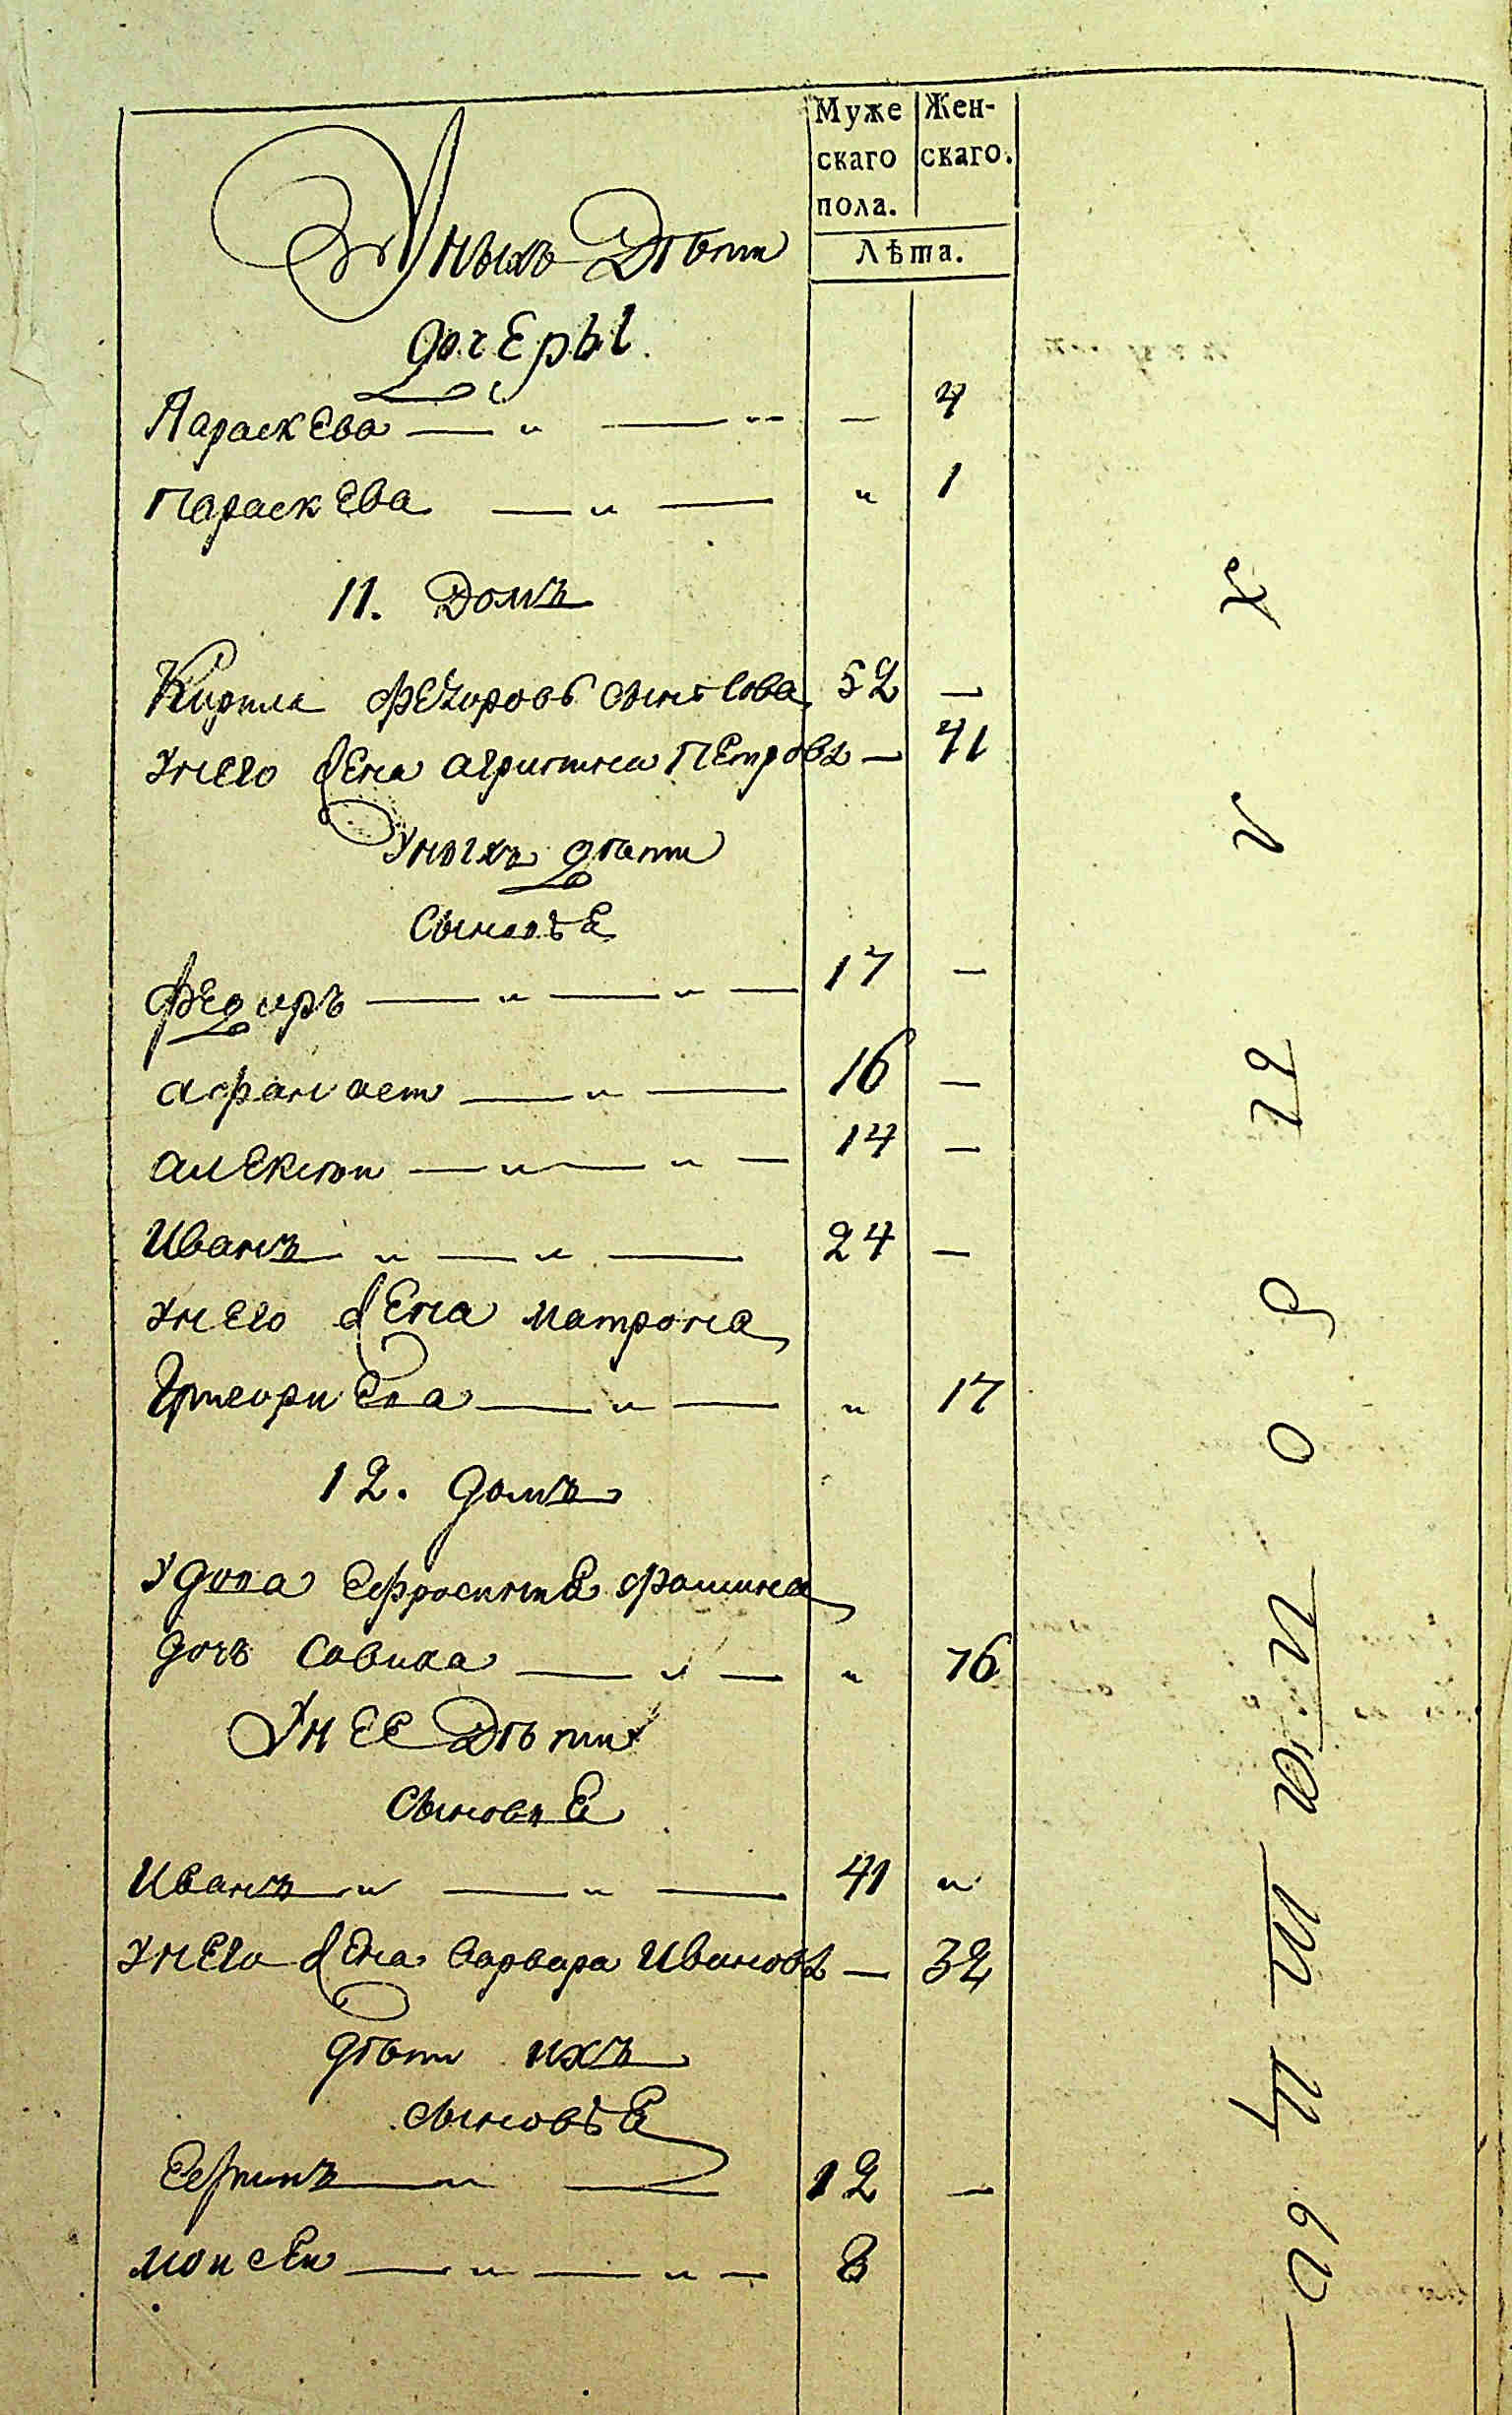 Муже Жен-
скаго скаго.
пола.
Лѣта.
Уныхъ Дѣти
дочеры
Параскева — „ — — 4
Параскева — „ — „ 1
11. Домъ
Кирила Федоровъ сынъ Сова 52 —
Унего жена агрипина Петрова — 41
Уныхъ дѣти
Сыновѣе
Федоръ — „ — „ — 17 —
афанасеи — „ — 16 —
алексѣи — „ — „ — 14 —
Иванъ „ — „ — 24 —
Унего жена матрона
Григориева — „ — „ 17
12. домъ
Удова Ефросиниа фомина
дочъ Совиха — „ — „ 76
Унее Дѣти
Сыновъе
Иванъ „ — „ — 41 „
Унего жена варвара Иванова — 32
дѣти ихъ
сыновѣе
— „ — 12 —
моисеи — „ — „ — 8